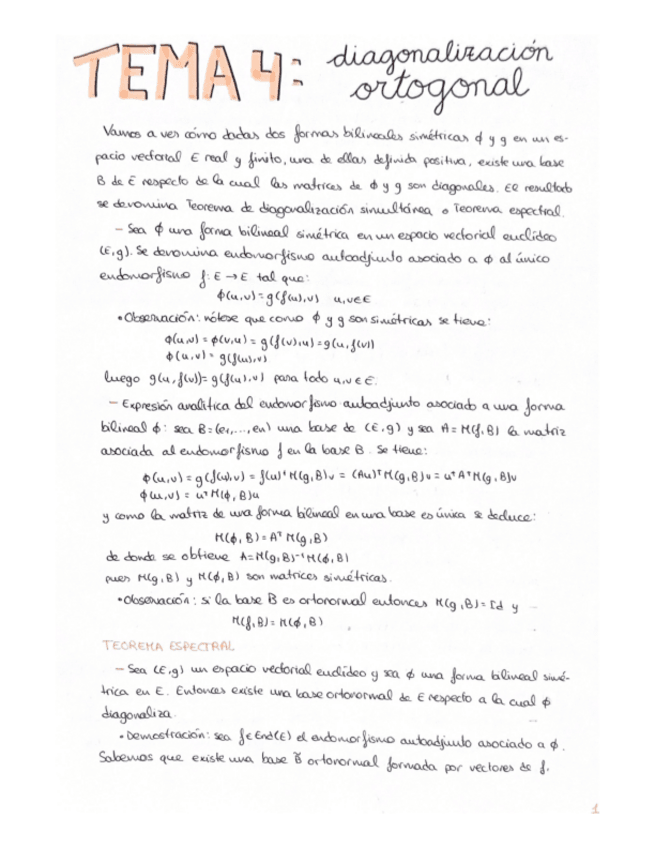 TEMA 4: diagonalización
ortogonal
Vamos a ver cómo dadas dos formas bilineales simétricas ϕ y g en un es-
pacio vectorial E real y finito, una de ellas definida positiva, existe una base
B de E respecto de la cual las matrices de ϕ y g son diagonales. El resultado
se denomina Teorema de diagonalización simultánea o Teorema espectral.
- Sea ϕ una forma bilineal simétrica en un espacio vectorial euclídeo
(E,g). Se denomina endomorfismo autoadjunto asociado a ϕ al único
endomorfismo f: E → E tal que:
ϕ(u,v) = g(f(u),v) u,v∈E
• Observación: nótese que como ϕ y g son simétricas se tiene:
ϕ(u,v) = ϕ(v,u) = g(f(v),u) = g(u,f(v))
ϕ(u,v) = g(f(u),v)
luego g(u,f(v)) = g(f(u),v) para todo u,v∈E.
- Expresión analítica del endomorfismo autoadjunto asociado a una forma
bilineal ϕ: sea B=(e₁,...,en) una base de (E,g) y sea A = M(f,B) la matriz
asociada al endomorfismo f en la base B. Se tiene:
ϕ(u,v) = g(f(u),v) = f(u)ᵗM(g,B)v = (Au)ᵀM(g,B)v = uᵗAᵀM(g,B)v
ϕ(u,v) = uᵗM(ϕ,B)u
y como la matriz de una forma bilineal en una base es única se deduce:
M(ϕ,B) = AᵗM(g,B)
de donde se obtiene A=M(g,B)⁻¹M(ϕ,B)
pues M(g,B) y M(ϕ,B) son matrices simétricas.
• Observación: si la base B es ortonormal entonces M(g,B)=Id y
M(f,B) = M(ϕ,B)
TEOREMA ESPECTRAL
- Sea (E,g) un espacio vectorial euclídeo y sea ϕ una forma bilineal simé-
trica en E. Entonces existe una base ortonormal de E respecto a la cual ϕ
diagonaliza.
• Demostración: sea f∈End(E) el endomorfismo autoadjunto asociado a ϕ.
Sabemos que existe una base B̃ ortonormal formada por vectores de f.
1